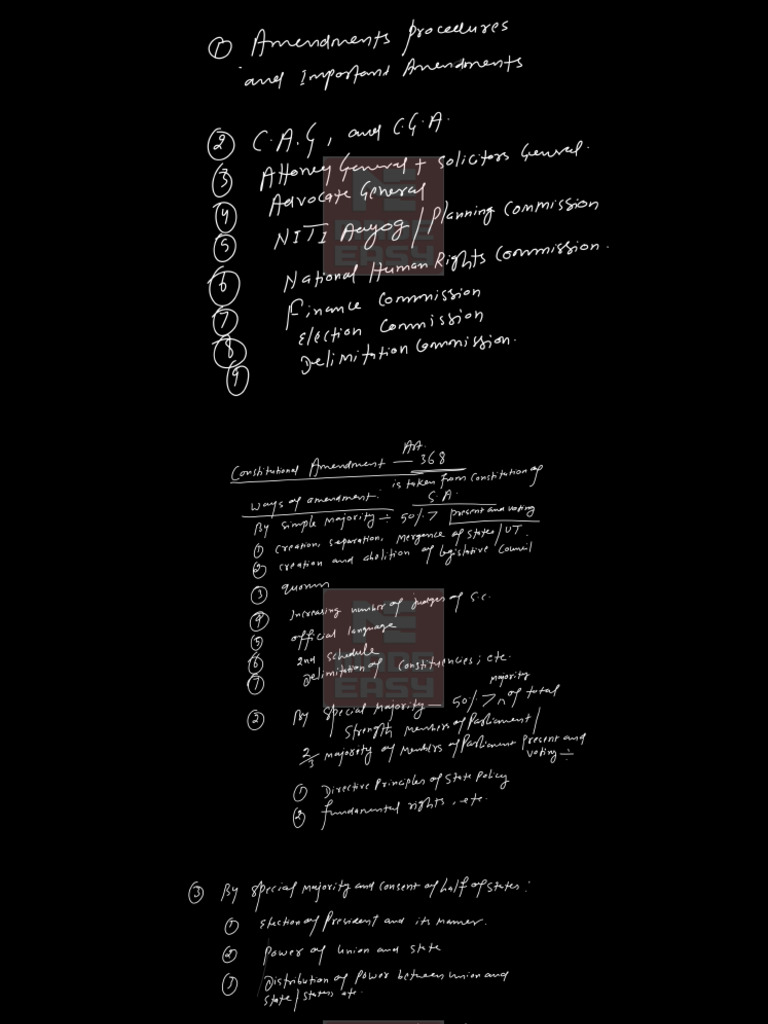 ① Amendments procedures
and Important Amendments
② C.A.G, and C.G.A.
③ Attorney General + Solicitors General.
④ Advocate General
⑤ NITI Aayog / Planning Commission
⑥ National Human Rights Commission.
⑦ Finance Commission
⑧ Election Commission
⑨ Delimitation Commission.
MADE EASY
Constitutional Amendment — Art. 368
ways of amendment: is taken from Constitution of S.A.
By simple majority ÷ 50% > present and voting
① Creation, separation, mergence of states/UT.
② creation and abolition of legislative Council
③ quorum
④ Increasing number of judges of S.C.
⑤ official language
⑥ 2nd schedule
⑦ Delimitation of constituencies; etc.
MADE EASY
② By special majority — 50% > majority of total
strength members of Parliament/
2/3 majority of members of Parliament present and voting ÷
① Directive Principles of State Policy
② fundamental rights, etc.
③ By special majority and consent of half of states:
① Election of President and its manner.
② Power of union and state
③ Distribution of power between union and
state/states etc.